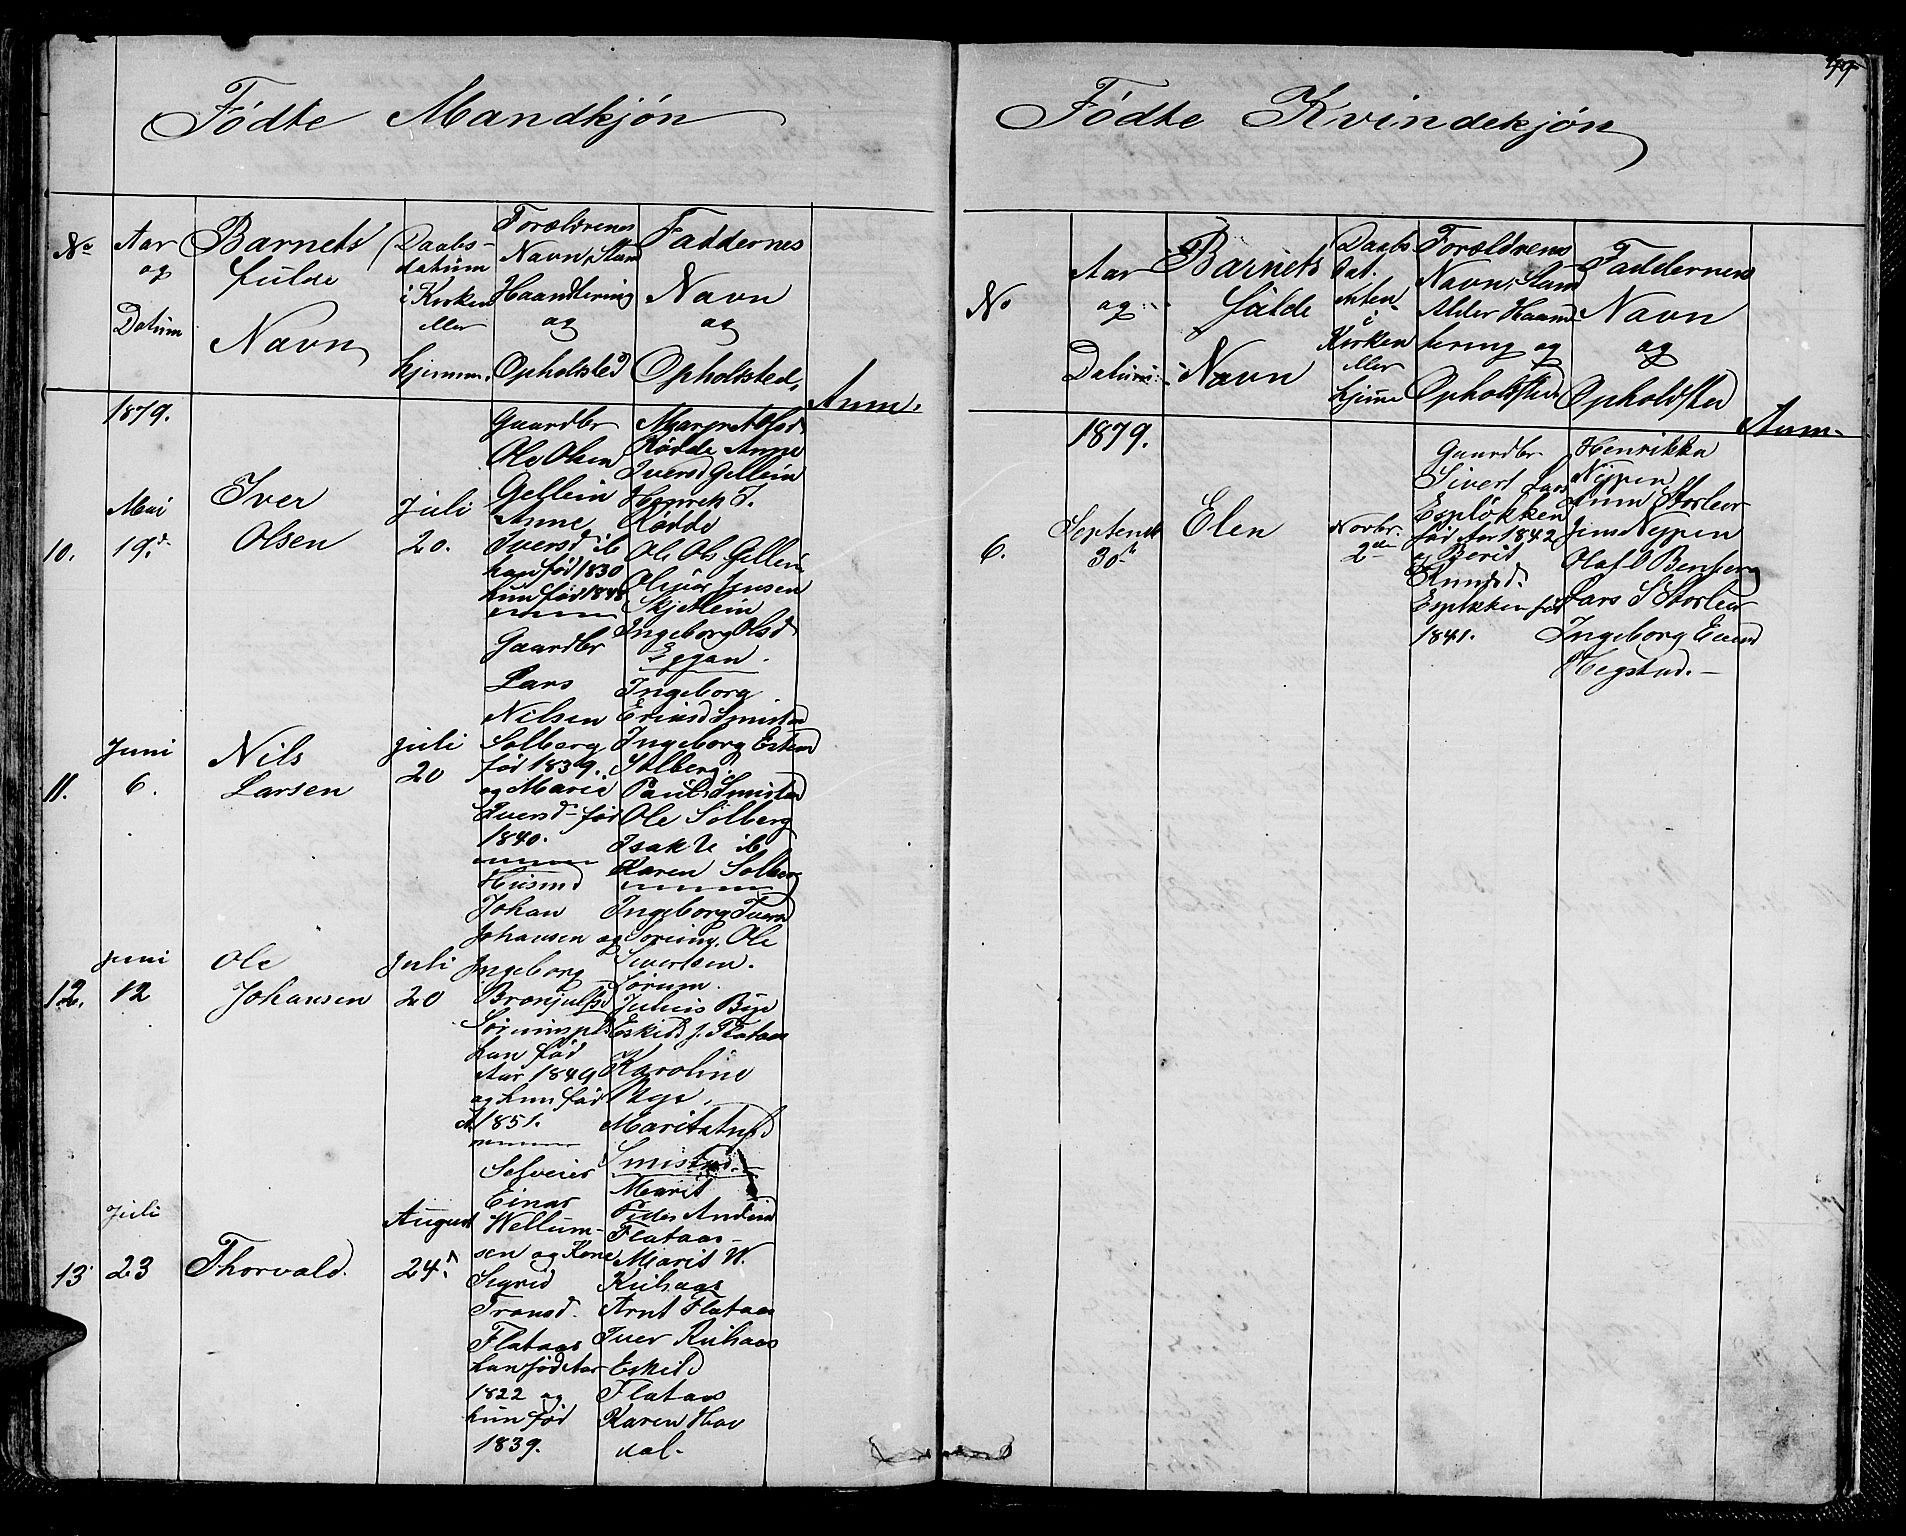 Fødte Mandkjøn
No
Aar
og
Datum
Barnets
fulde
Navn
Daabs-
datum
i Kirken
eller
hjemme.
Forældrenes
Navn, Stand
Haandtering
og
Opholtsted
Faddernes
Navn
og
Opholtsted,
Anm.
1879.
10.
Mai
19.d
Iver
Olsen
Juli
20.
Gaardbr
Ole Olsen
Gellein
Anne
Iversd ib
han fød 1830
hun fød 1848
Margret Olsd.
Rødde Anne
Iversd Gellein
Henrik J.
Rødde
Ole Ols. Gellein
Jensen
Skjetlein
Ingeborg Olsd
Eggan.
11.
Juni
6.
Nils
Larsen
Juli
20
Gaardbr
Lars
Nilsen
Solberg
fød 1839.
og Marie
Iversd fød
1840.
Ingeborg
Ericsd Smistad
Ingeborg Estend
Solberg.
Paul Smistad
Ole Solberg
Isak ib
Karen Solberg
12.
Juni
12
Ole
Johansen
Juli
20
Husmd
Johan
Johansen og
Ingeborg
Sørumspl
han fød
Aar 1849
og hun fød
1851.
Ingeborg Iversd
Ole
Sivertsen.
Sørum.
Julius Bye
Eskild J. Flataas
Karoline
Bye,
Marit
Smistad.
13
Juli
23
Thorvald.
August
24.
Selveier
Einar
Wellum-
sen og Kone
Sigrid
Tronsd.
Flataas
han fød Aar
1822 og
hun fød
1839.
Marit
Flataas-
Marit W.
Arnt Flataas
Iver
Eskild
Flataas
Karen Hov
dal-
Fødte Kvindekjøn
No
Aar
og
Datum:
Barnets
fulde
Navn
Daabs
dat.
enten
i
Kirken
eller
hjeme
Forældrens
Navn, Stand
Alder Haand
tering og
Opholdsted
Faddernes
Navn
og
Opholdsted
Anm-
1879.
6.
Septemb
30te
Elen
Novbr.
2den
Gaardbr
Sivert Lars
Espløkken
fød Aar 1842
og Berit
Knudsd.
Espløkken fød
1841.
Henrikka
Nypen
Storleer
Jens Nypen
Olaf O Benberg
Lars S Storleer
Ingeborg
Hegstad.-